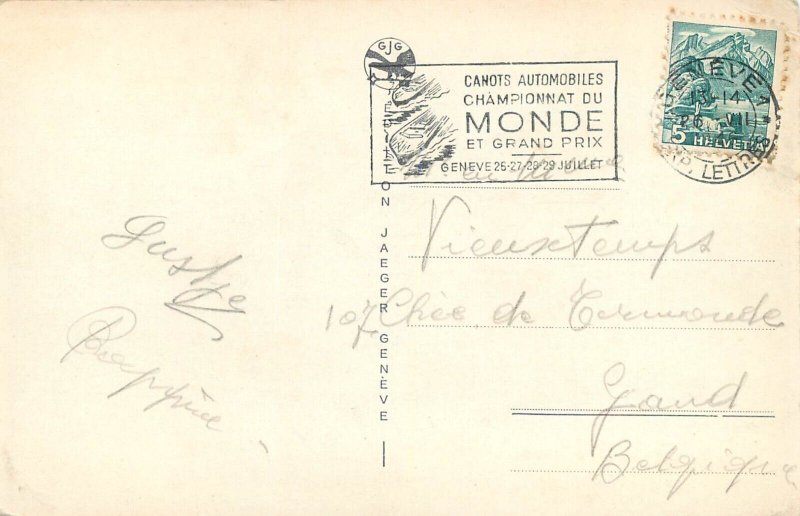 GJG
CANOTS AUTOMOBILES
CHAMPIONNAT DU
MONDE
ET GRAND PRIX
GENEVE 26-27-28-29 JUILLET
GENÈVE 1
14
26 VII
LETTRES
5 HELVETIA
ON JAEGER GENÈVE
Vieuxtemps
107 Chée de Termonde
Gand
Belgique